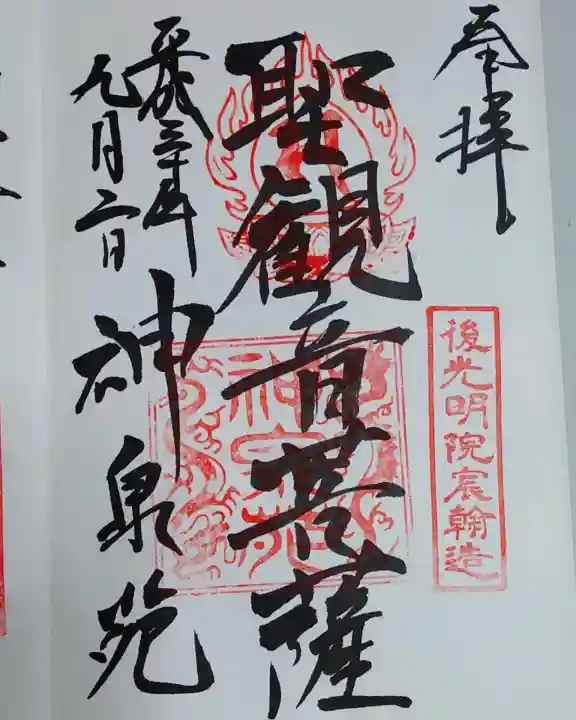 奉拝
後光明院宸翰造
聖観音菩薩
神泉苑
平成三十年
九月二日
神泉苑